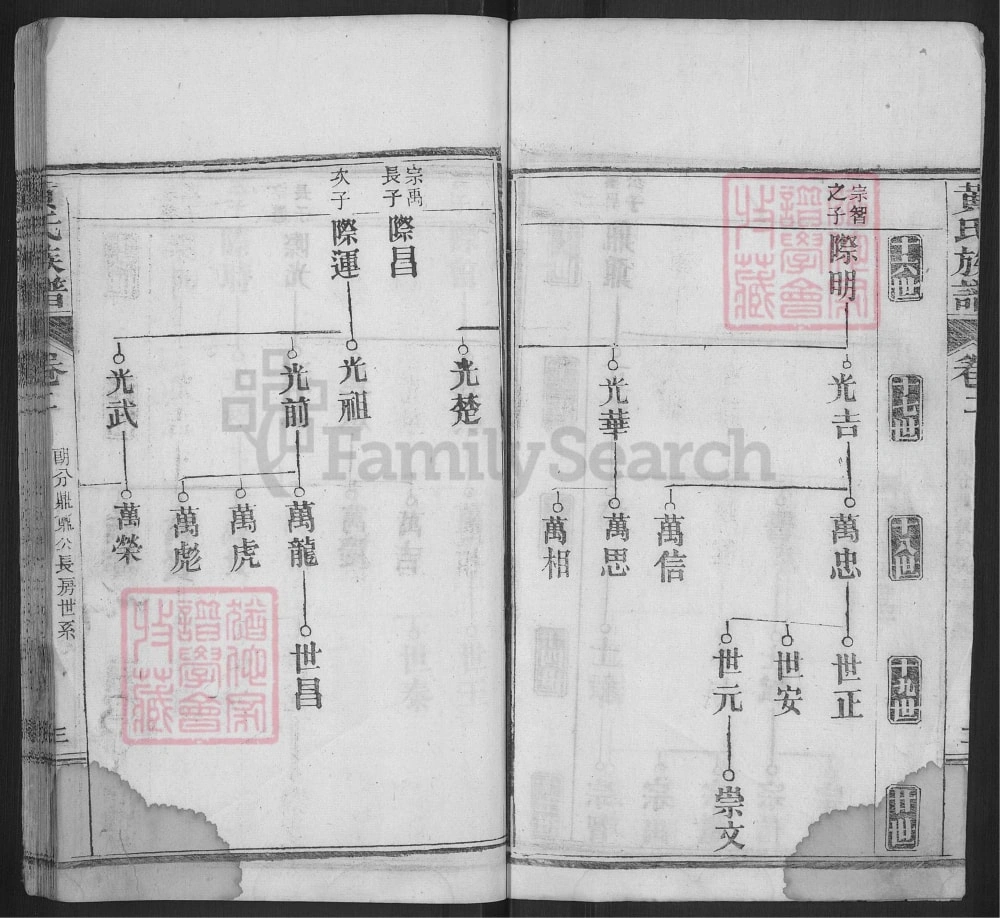 黃氏族譜
卷二
三
十六世
十七世
十八世
十九世
二十世
宗智之子
際明
光吉
光華
萬忠
萬信
萬思
萬相
世正
世安
世元
崇文
光楚
宗禹長子
際昌
次子
際運
光祖
光前
光武
萬龍
萬虎
萬彪
萬榮
世昌
公長房世系
三
譜學會
收藏
FamilySearch